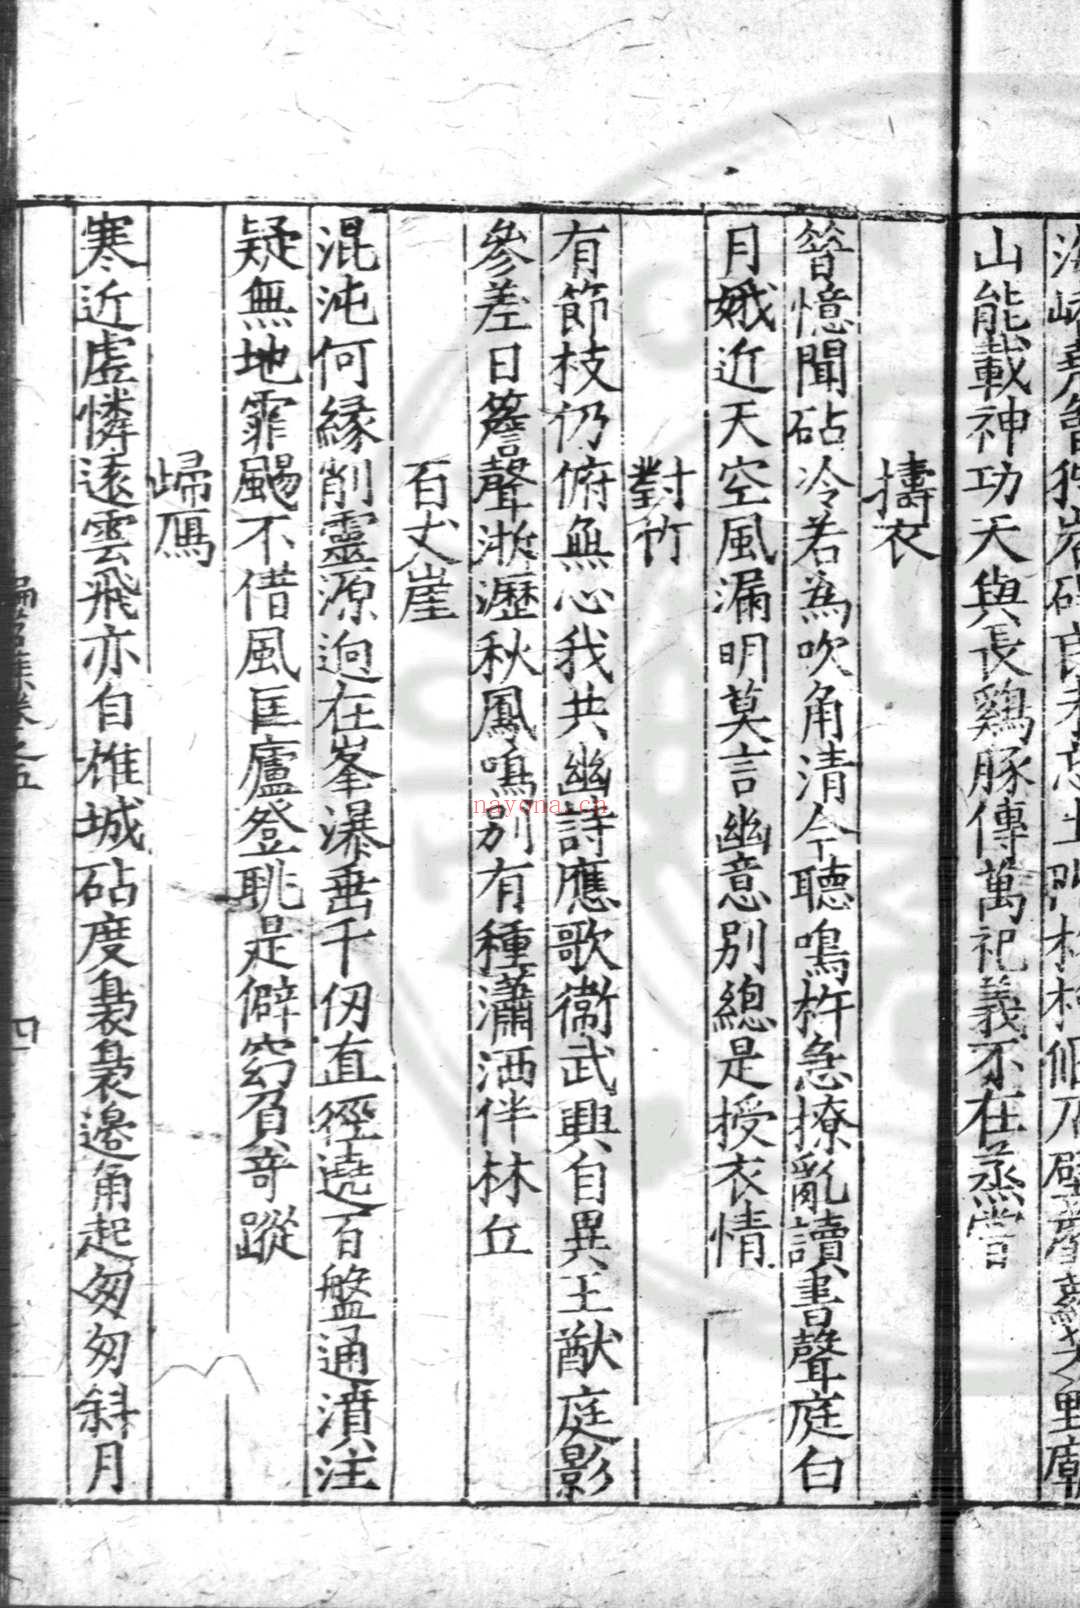 山能載神功天與長鷄豚傳萬祀義不在烝嘗
擣衣
昝憶聞砧冷若為吹角清今聽鳴杵急撩亂讀書聲庭白
月娥近天空風漏明莫言幽意别總是授衣情
對竹
有節枝仍俯無心我共幽詩應歌衛武興自異王猷庭影
參差日簷聲淅瀝秋鳳鳴别有種瀟洒伴林丘
百丈崖
混沌何緣削靈源迥在峯瀑垂千仞直徑遶百盤通濆注
疑無地霏颺不借風匡廬登眺是僻窈負奇蹤
歸鴈
寒近虗憐遠雲飛亦自雄城砧度裊裊邊角起匆匆斜月
四
nayona.ca